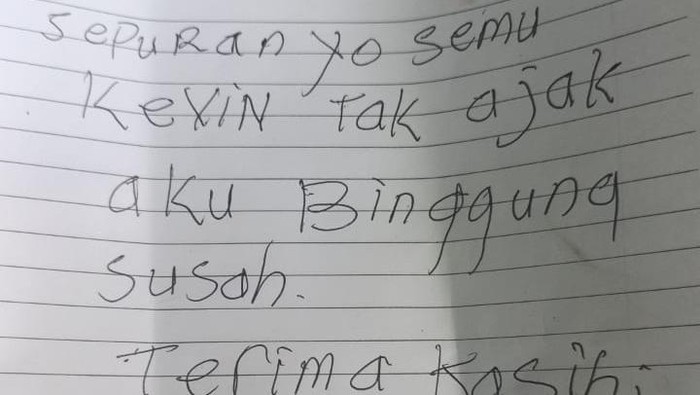 Sepuran yo semu
Kevin tak ajak
aku Binggung
susah.
Terima Kasih.